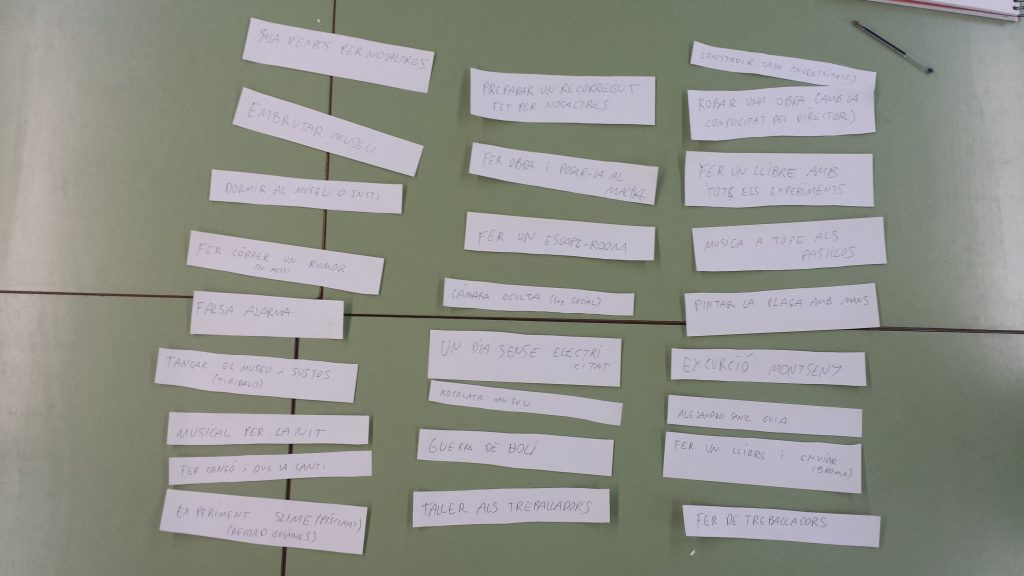 SALA PER NOSALTRES
EMBRUTAR MUSEU
DORMIR AL MUSEU O INSTI
FER CÓRRER UN RUMOR
FALSA ALARMA
TANCAR EL MUSEU SUSTOS
(TIBIDABO)
MUSICAL PER LA NIT
FER CANÇÓ QUE LA CANTI
EXPERIMENT SLIME (PISCINA?)
(RECORD GUINNES)
PREPARAR UN RECORREGUT
FET PER NOSALTRES
FER OBRA I POSAR-LA AL
MACBA
FER UN ESCAPE-ROOM
CÁMARA OCULTA (Exp SOCIAL)
UN DIA SENSE ELECTRI
CITAT
XOCOLATA MUSEU
GUERRA DE HOLI
TALLER ALS TREBALLADORS
CONSTRUIR CASA (NECESSITATS)
ROBAR UNA OBRA (AMB LA
COMPLICITAT DEL DIRECTOR)
FER UN LLIBRE AMB
TOTS ELS EXPERIMENTS
MUSICA A TOPE ALS
PASILLOS
PINTAR LA PLAÇA AMB MANS
EXCURCIÓ MONTSENY
ALEJANDRO SANZ GUIA
FER UN LLIBRE I ENVIAR
(OBAMA)
FER DE TREBALLADORS